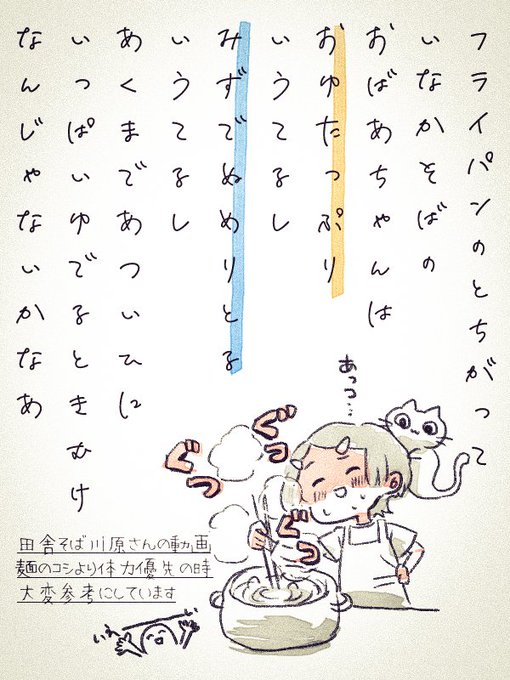 フライパンのとちがって
いなかそばの
おばあちゃんは
おゆたっぷり
いうてるし
みずでぬめりとる
いうてるし
あくまであついひに
いっぱいゆでるときむけ
なんじゃないかなあ
あっつ…
ぐっ
ぐっ
ぐっ
田舎そば川原さんの動画
麺のコシより体力優先の時
大変参考にしています